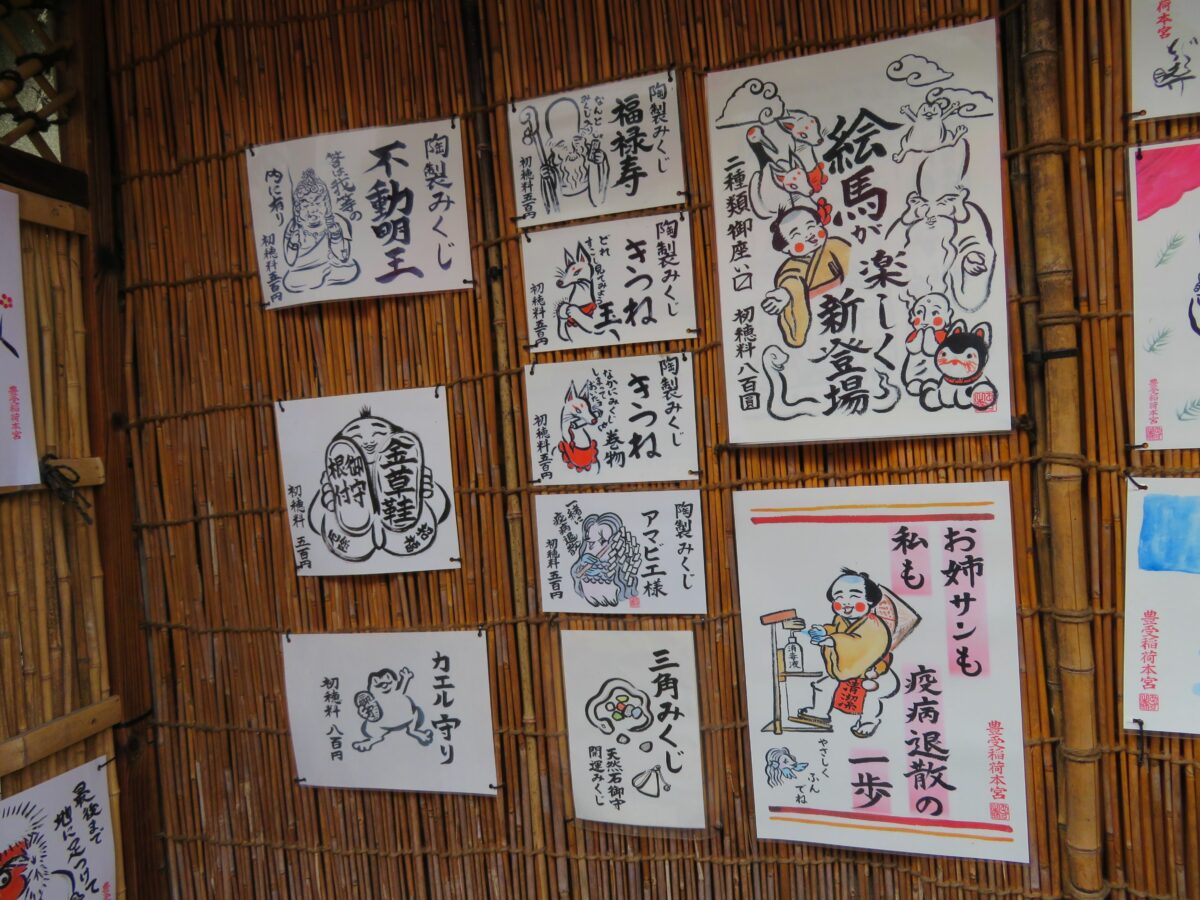 陶製みくじ
不動明王
答は我等の
内に有り
初穂料五百円
金草鞋
御守
根付
初穂料 五百円
カエル守り
初穂料 八百円
陶製みくじ
福禄寿
なんと
初穂料五百円
陶製みくじ
きつね
玉
どれ
初穂料五百円
陶製みくじ
きつね
巻物
なかにみくじ
初穂料五百円
陶製みくじ
アマビエ様
一緒に
疫病退散
初穂料五百円
三角みくじ
天然石御守
開運みくじ
絵馬が
楽しく
新登場
二種類御座い〼
初穂料八百圓
お姉サンも
私も
疫病退散の
一歩
消毒液
清潔
やさしく
ふん
でね
豊受稲荷本宮
稲荷本宮
豊受稲荷本宮
豊受稲荷本宮
豊受稲荷本宮
最後まで
地に足つけて